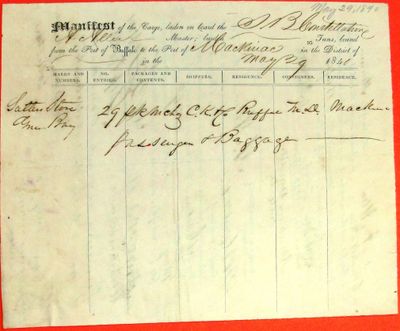 May 29, 1840
Manifest of the Cargo, laden on board the S B Constitution
A Allen Master; Burthen Tons, bound
from the Port of Buffalo to the Port of Mackinac in the District of
in the May 29 1840
MARKS AND NUMBERS. NO. ENTRIES. PACKAGES AND CONTENTS. SHIPPERS. RESIDENCE. CONSIGNEES. RESIDENCE.
Store 29 pk Mchz C. K & Co M. D. Mackinac
Bay
Passengers & Baggage